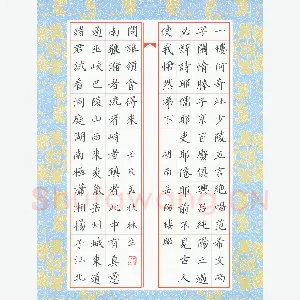 一樓何奇杜少陵五言絕唱范希文两
字關情滕子京百廢俱興呂純陽三過
必醉詩耶儒耶吏耶仙耶前不見古人
使我愴然涕下
岳陽樓聯
諸君試看洞庭湖南極瀟湘揚子江北
通巫峽巴陵山西來爽氣岳州城東道
巖疆瀦者流者峙者鎮者此中有真意
問誰領會得來